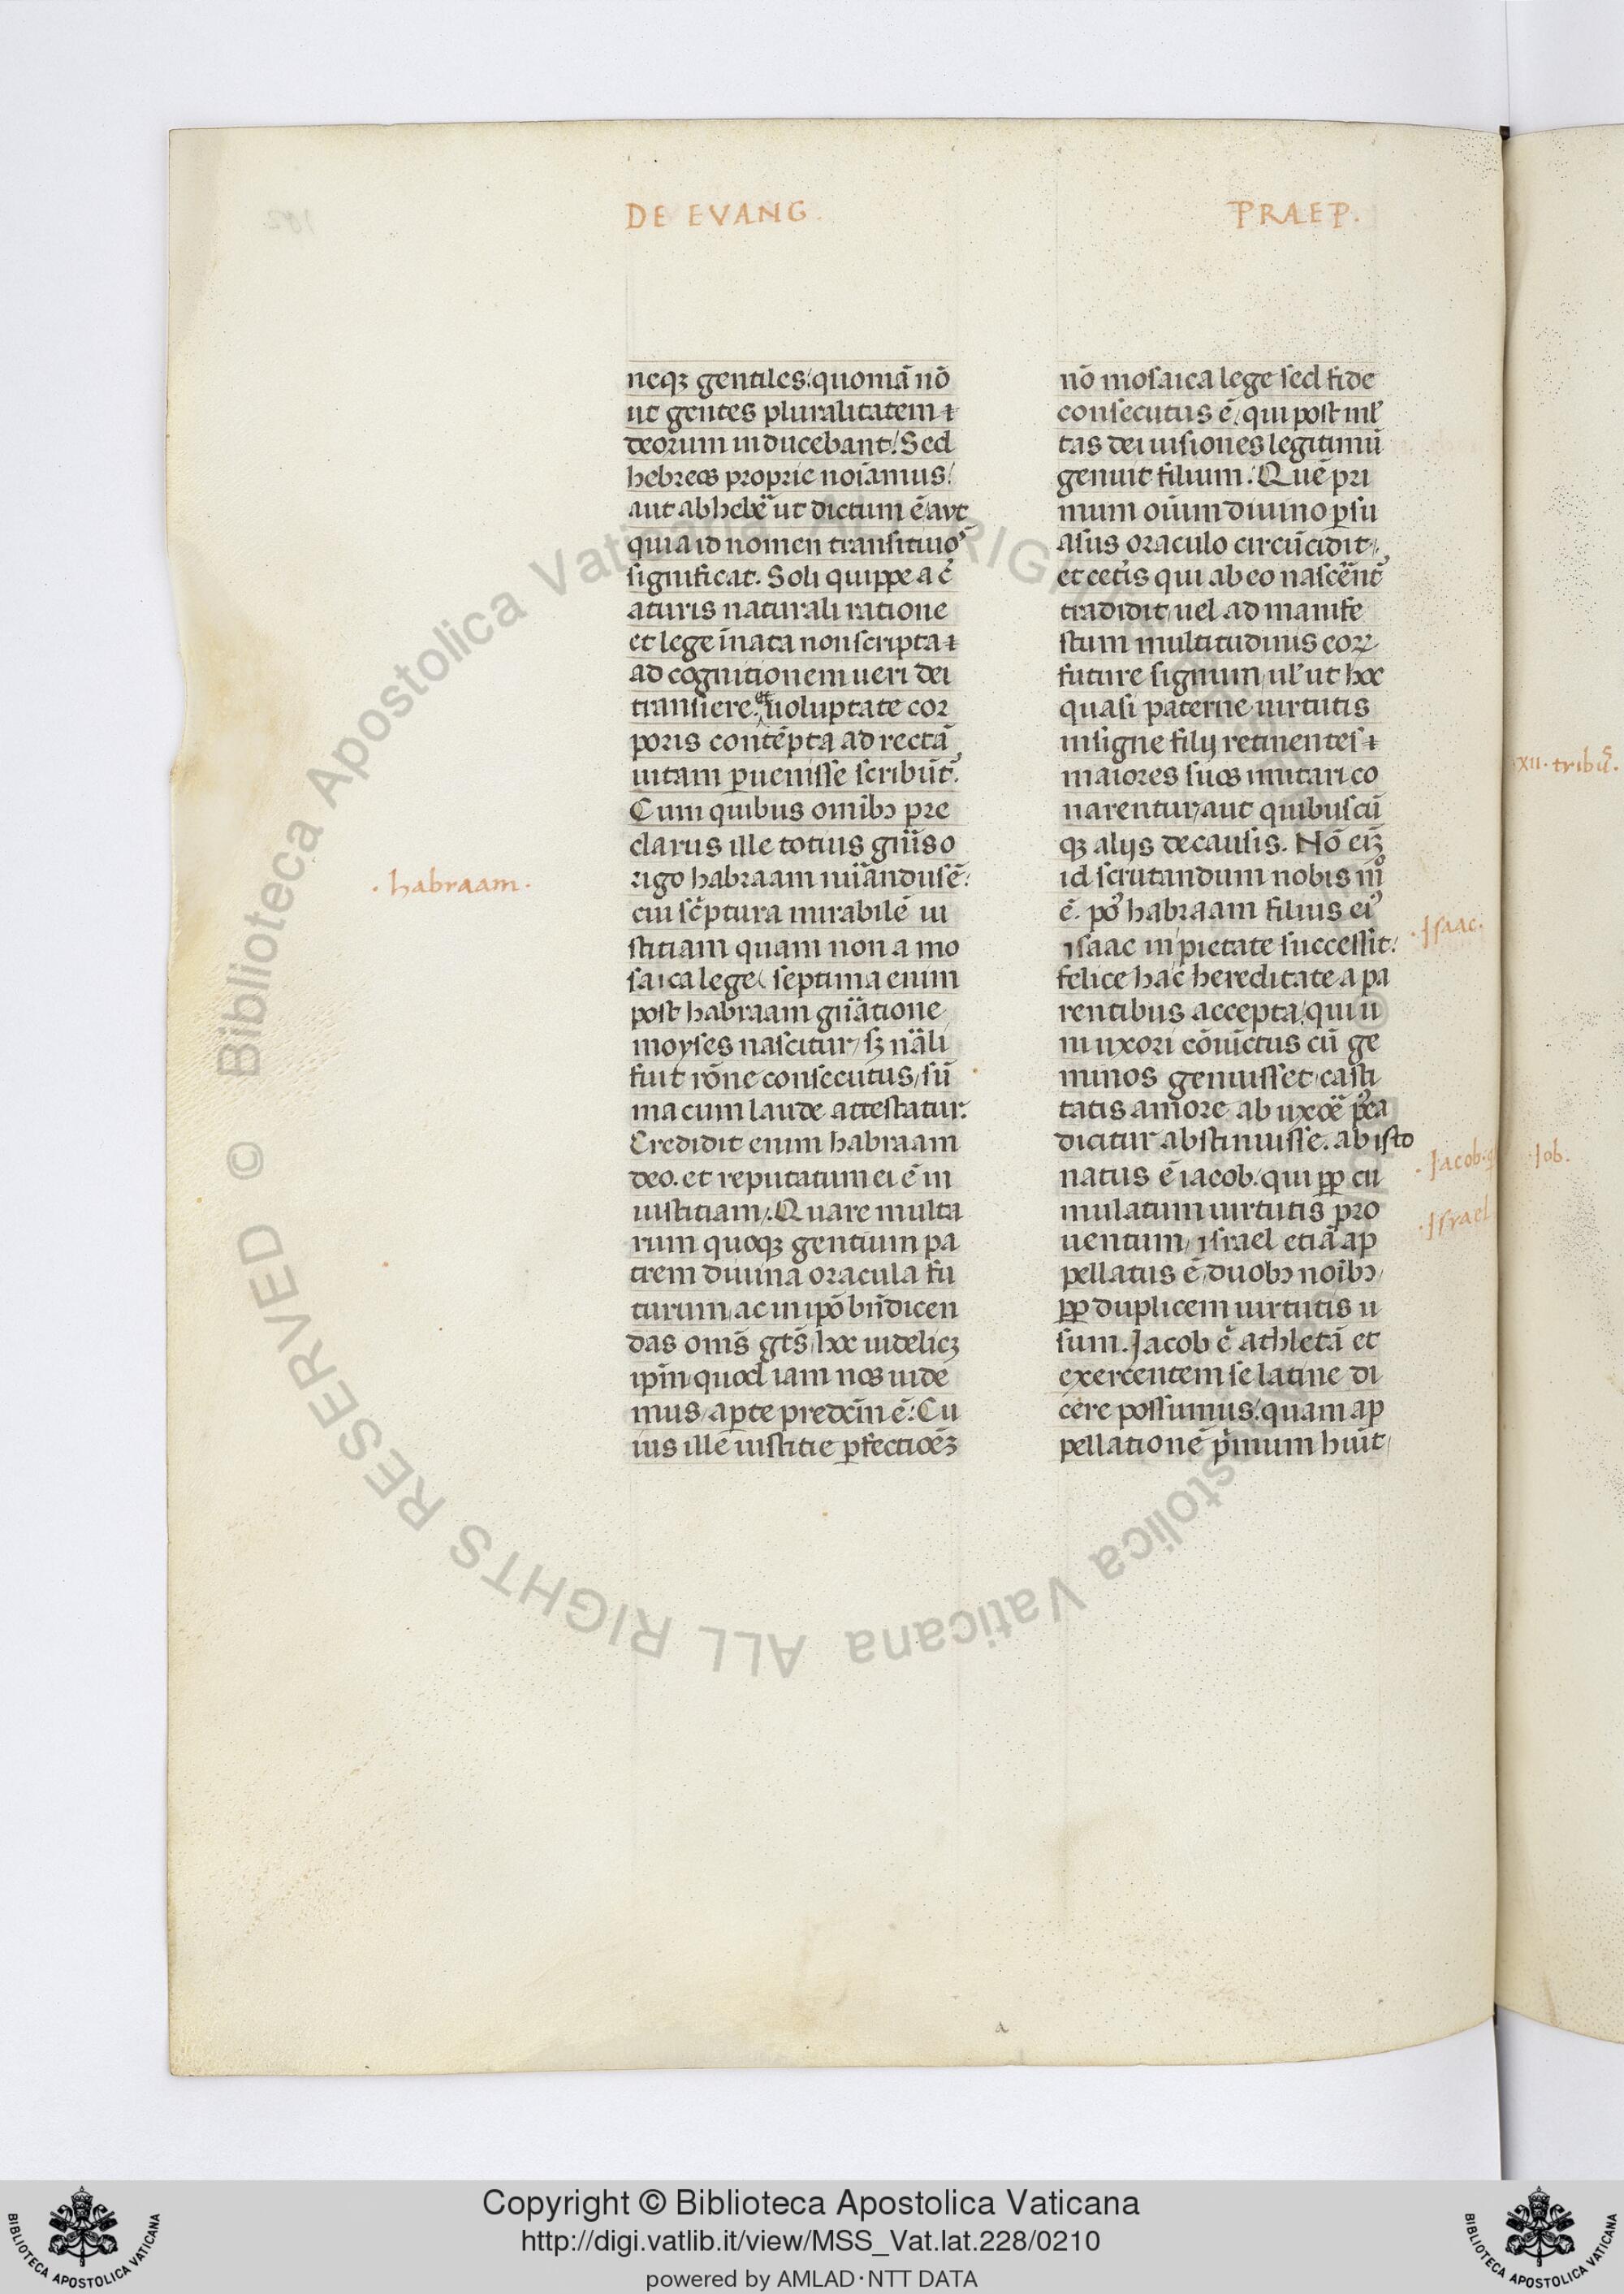 DE EVANG.
PRAEP.
neqꝫ gentiles: quoniā nō
ut gentes pluralitatem
deorum inducebant: Sed
hebreos proprie noīamus:
aut ab ut dictum ē aut
quia id nomen transitiuos
significat. Soli quippe a cͥe
aturis naturali ratione
et lege īnata non scripta
ad cognitionem ueri dei
transiere: et uoluptate cor
poris contēpta ad rectā
uitam ꝑuenisse scribūt᷑.
Cum quibus omībꝫ pre
clarus ille totius o
rigo habraam ē:
cui sc͛ptura mirabilē iu
stitiam quam non a mo
saica lege ( septima enim
post habraam gnātione
moyses nascitur, sꝫ nāli
fuit rōne consecutus, sū
ma cum laude attestatur:
Credidit enim habraam
deo. et reputatum ei ē in
iustitiam: Quare multa
rum quoqꝫ gentium pa
trem diuina oracula fu
turum, ac in ipō bn̄dicen
das om̄s gt̄s, hoc uidelicꝫ
ip̄m quod iam nos uide
mus, aꝑte predcm̄ ē: Cu
ius ille iustitie ꝑfectiōeꝫ
. habraam .
nō mosaica lege sed fide
consecutus ē, qui post ml̄
tas dei uisiones legitimū
genuit filium: Quē pri
mum oīum diuino ꝑsu
asus oraculo circūcidit,
et cetis qui ab eo nascēnt᷑
tradidit, uel ad manife
stum multitudinis eoꝝ
future signum, ul̄ ut hoc
quasi paterne uirtutis
insigne filij retinentes
maiores suos imitari co
narentur, aut quibuscū
qꝫ alijs de causis. Nō eīꝫ
id scrutandum nobis mͦ
ē. pꝰ habraam filius eiꝰ
isaac in pietate successit:
felice hac hereditate a pa
rentibus accepta: qui u
ni uxori cōiūctus cū ge
minos genuisset, casti
tatis amore ab uxoē pꝰea
dicitur abstinuisse. ab isto
natus ē iacob. qui ꝓp cu
mulatum uirtutis pro
uentum, israel etiā ap
pellatus ē, duobꝫ noībꝫ,
ꝓp duplicem uirtutis u
sum. Jacob ē athletā et
exercentem se latine di
cere possumus: quam ap
pellationē pͥmum hūit,
. Isaac.
. Jacob.
. Israel
.XII. tribꝰ.
. Iob.
a
Copyright © Biblioteca Apostolica Vaticana
http://digi.vatlib.it/view/MSS_Vat.lat.228/0210
powered by AMLAD·NTT DATA
BIBLIOTECA APOSTOLICA VATICANA
BIBLIOTECA APOSTOLICA VATICANA
© Biblioteca Apostolica Vaticana ALL RIGHTS RESERVED